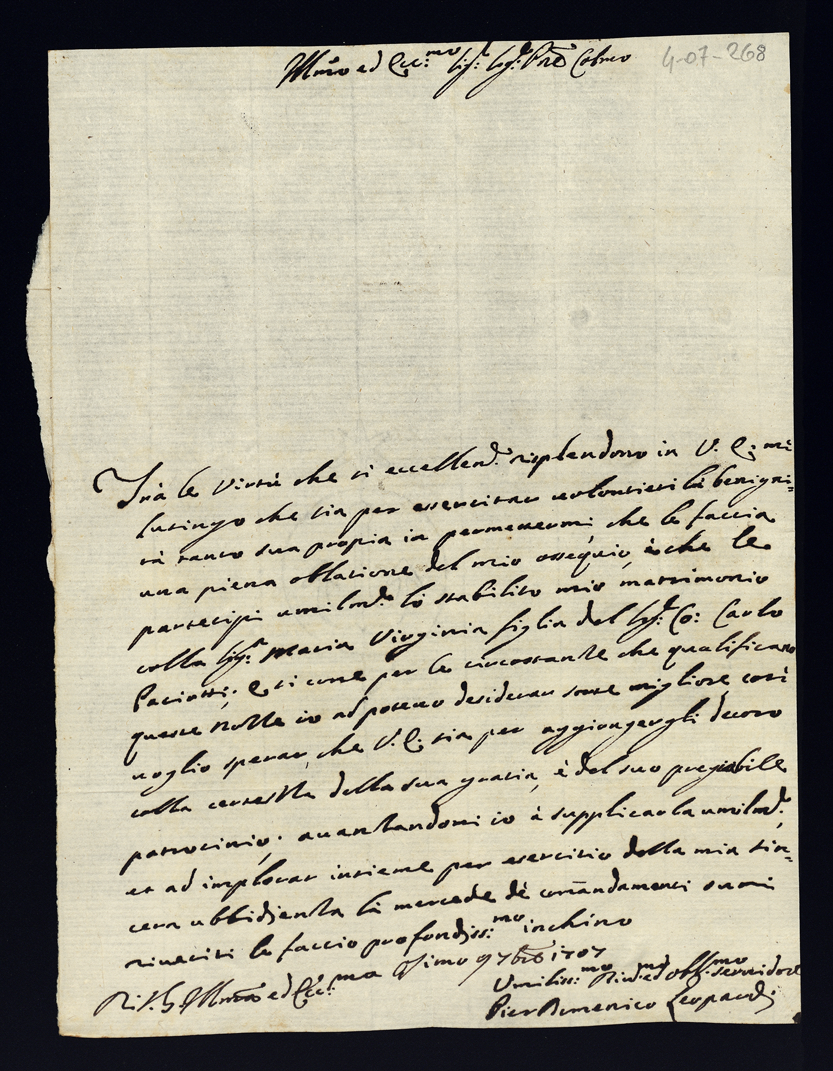 Ill.mo ed Ecc.mo Sig.r Sig.r P.ron Col.mo
4-07-268
Trà le virtù che si eccellem.te risplendono in V. E: mi
lusingo che sia per essercitar volontieri la benigni=
tà tanto sua propria in permettermi che le faccia
una piena oblatione del mio ossequio, è che le
partecipi umilm.te lo stabilito mio matrimonio
colla Sig.ra Maria Virginia figlia del Sig.r Co: Carlo
Paciotti; e si come per le circostanze che qualificano
queste nozze io nō potevo desiderar sorte migliore così
voglio sperar, che V. E. sia per aggiongergli decoro
colla certezza della sua grazia, è del suo pregiabile
patrocinio; avanzandomi io à supplicarla umilm.te,
et ad implorar insieme per esercitio della mia sin=
cera ubbidienza la mercede dè comandamenti suoi
riveriti le faccio profondiss:mo inchino
Di V. E. Ill.ma ed Ecc.ma Osimo 9 7bre 1707
Umiliss:mo Div.mo ed obl.mo servidore
Pier Domenico Leopardi